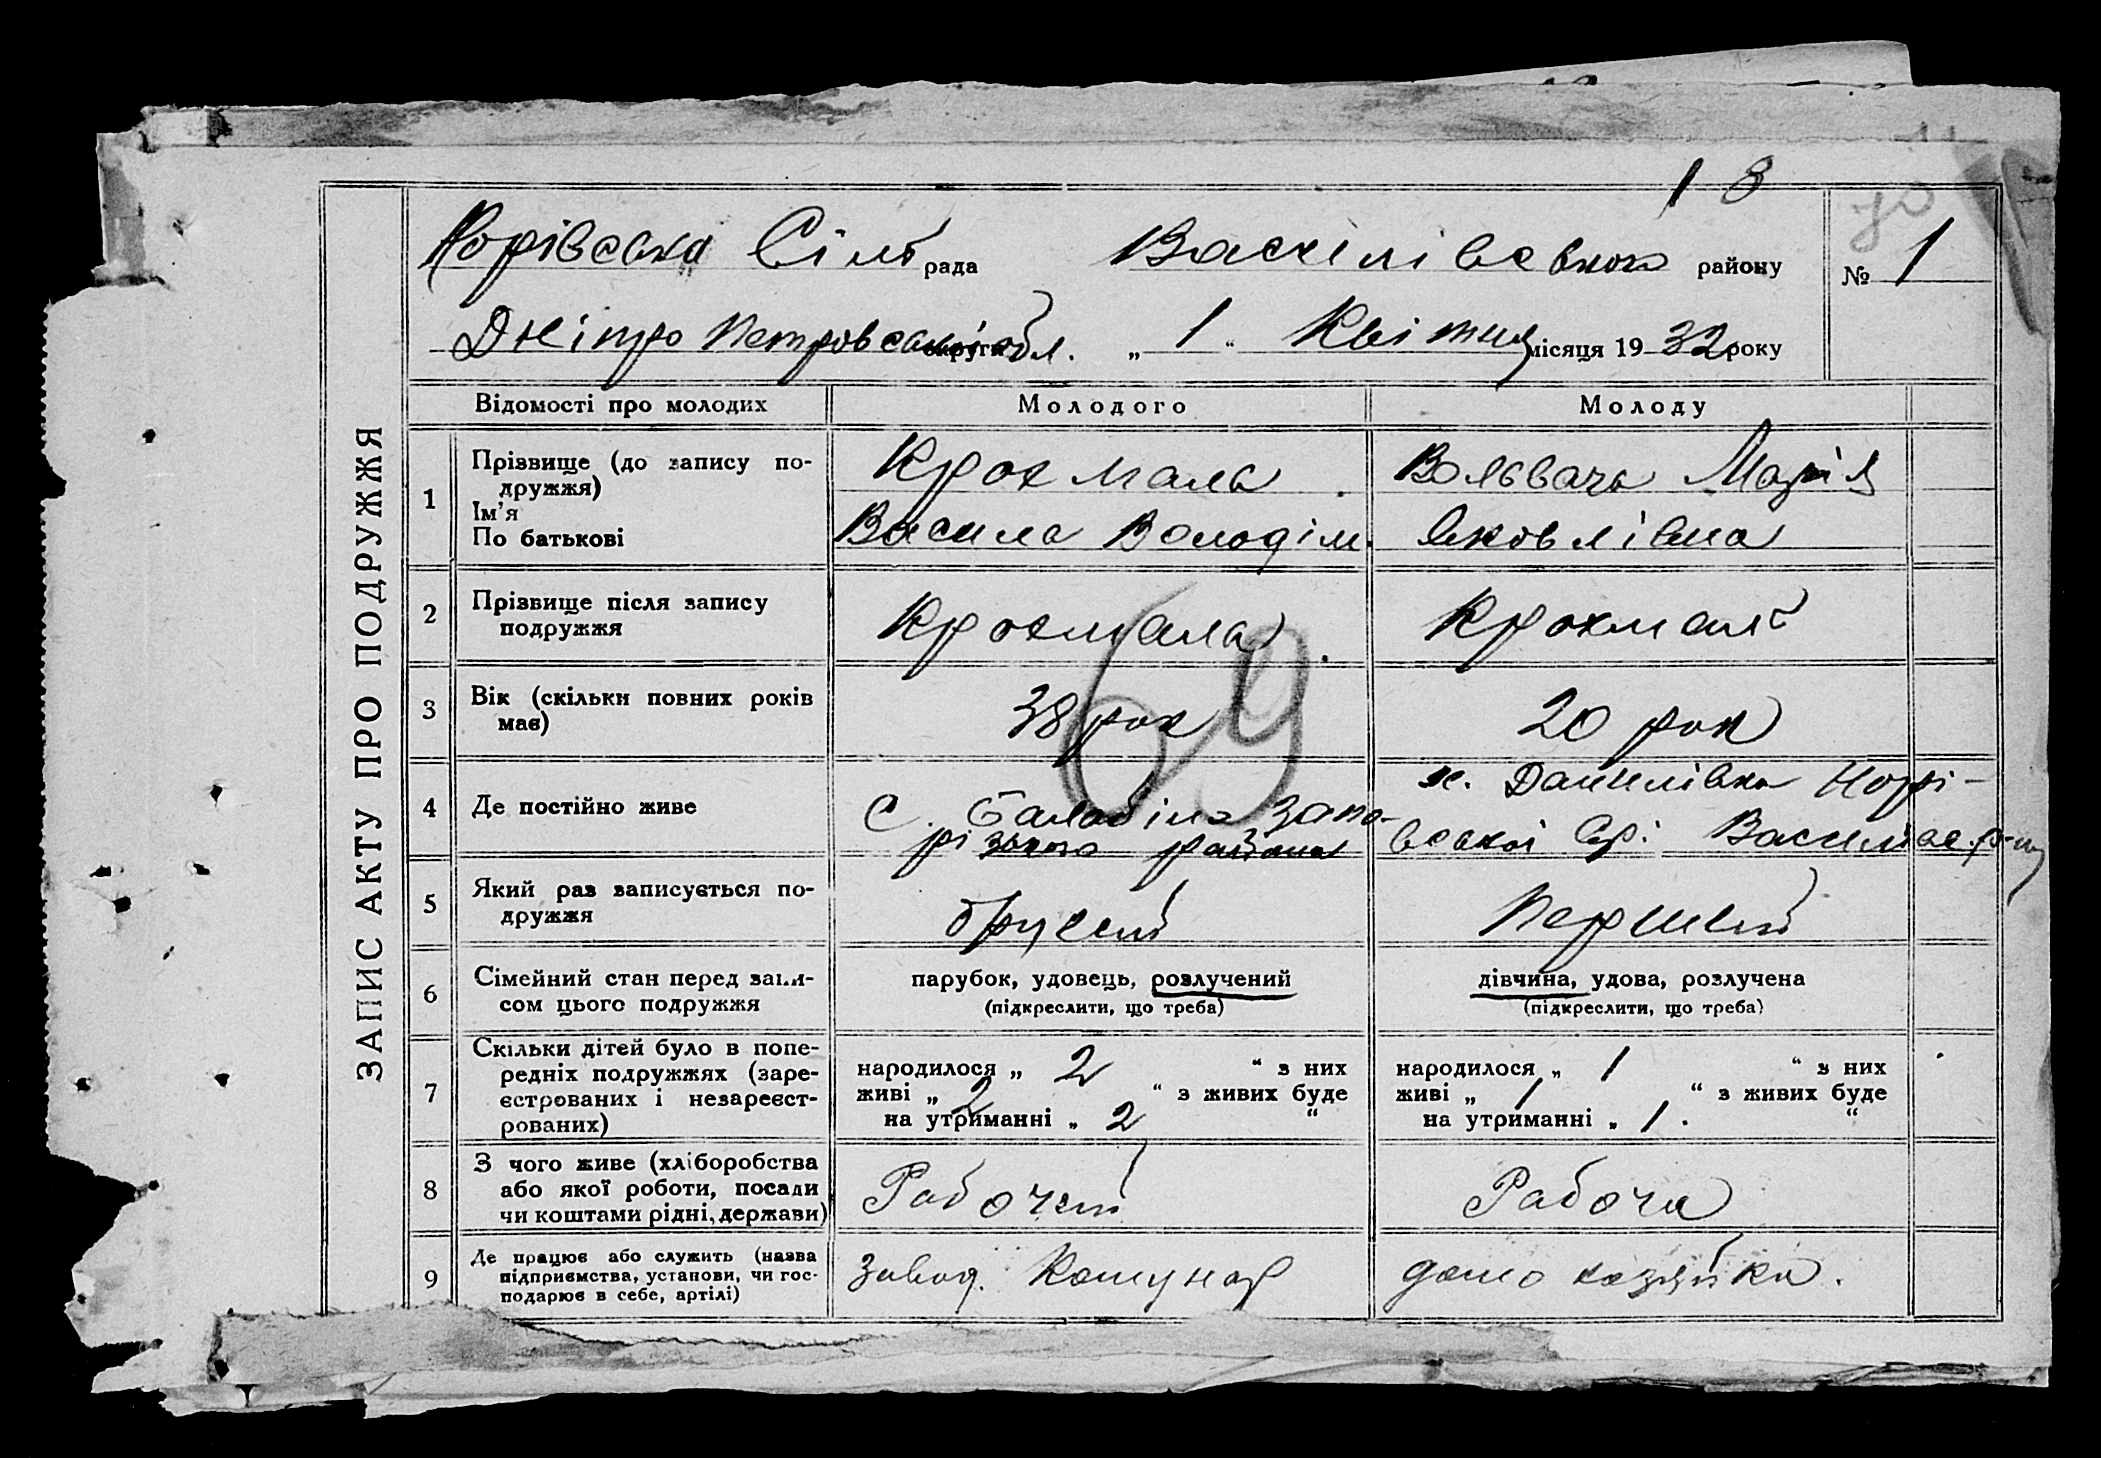 18
ЗАПИС АКТУ ПРО ПОДРУЖЖЯ
Норівська Сільрада Василівського району № 1
Дніпропетровської обл. „1“ Квітня місяця 1932 року
Відомості про молодих Молодого Молоду
1 Прізвище (до запису по-
дружжя)
Ім'я
По батькові
Крохмаль
Василь Володім.
Вольвачь Марія
Яковлівна
2 Прізвище після запису
подружжя
Крохмаль
Крохмаль
69
3 Вік (скільки повних років
має)
38 рок
20 рок
4 Де постійно живе
С. Балабіно Запо-
різького района
х. Данилівка Норі-
вської Ср. Василівс. р-ну
5 Який раз записується по-
дружжя
другий
Перший
6 Сімейний стан перед запи-
сом цього подружжя
парубок, удовець, розлучений
(підкреслити, що треба)
дівчина, удова, розлучена
(підкреслити, що треба)
7 Скільки дітей було в попе-
редніх подружжях (заре-
єстрованих і незареєст-
рованих)
народилося „ 2 “ з них
живі „ 2 “ з живих буде
на утриманні „ 2 “
народилося „ 1 “ з них
живі „ 1 “ з живих буде
на утриманні „ 1. “
8 З чого живе (хліборобства
або якої роботи, посади
чи коштами рідні, держави)
Рабочий
Рабоча
9 Де працює або служить (назва
підприємства, установи, чи гос-
подарює в себе, артілі)
Завод. Комунар
домохазяйка.